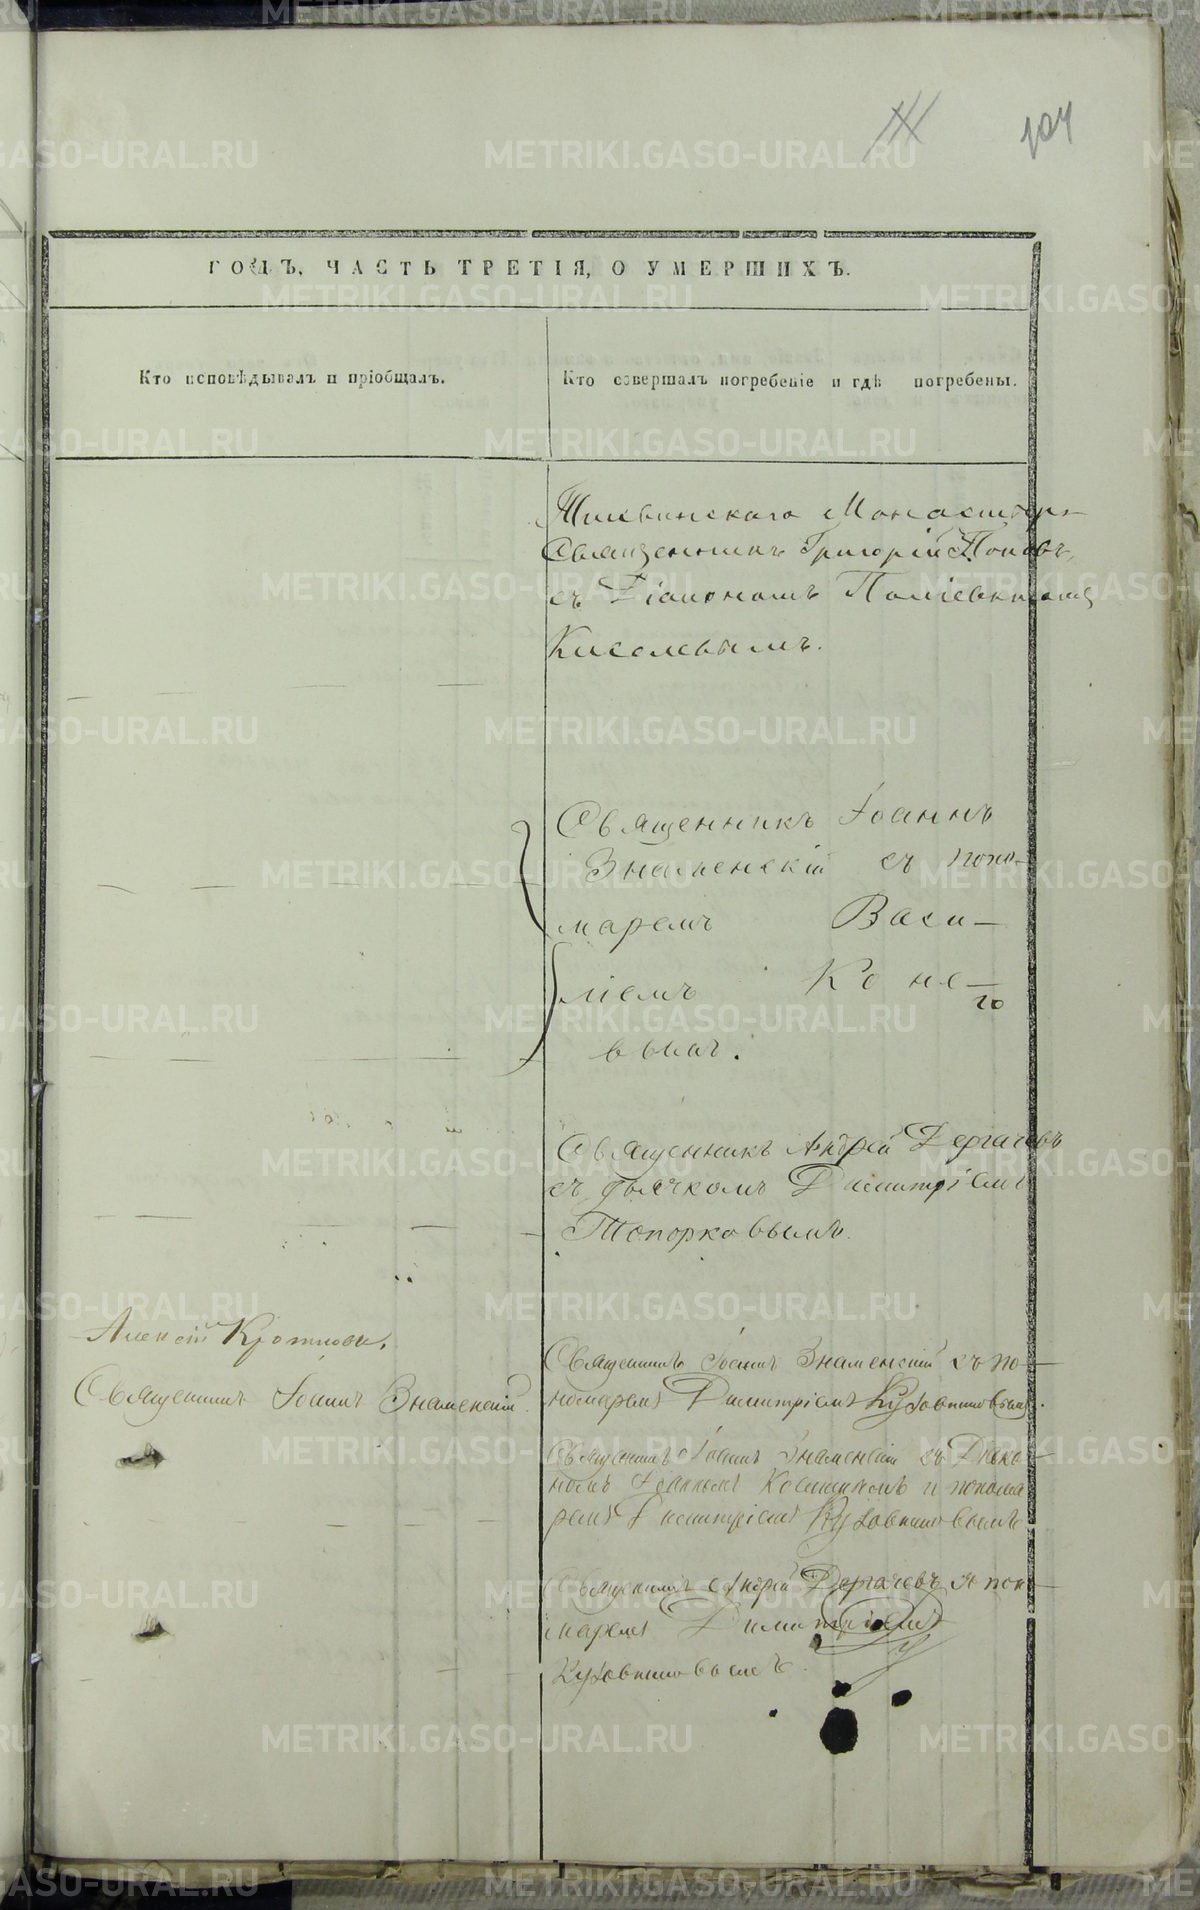 104
ГОДЪ, ЧАСТЬ ТРЕТІЯ, О УМЕРШИХЪ.
Кто исповѣдывалъ и пріобщалъ.
Кто совершалъ погребеніе и гдѣ погребены.
Тихвинскаго Монастыря
Священникъ Григорій Поповъ,
съ Діакономъ
Киселевымъ.
Священникъ Іоаннъ
Знаменскій съ поно-
маремъ Васи-
ліемъ Коне-
вымъ.
Священникъ Андрей Дергачевъ
съ дьячкомъ Димитріемъ
Топорковымъ.
Алексѣй
Священникъ Іоаннъ Знаменскій.
Священникъ Іоаннъ Знаменскій съ по-
номаремъ Димитріемъ Кузовниковымъ.
Священникъ Іоаннъ Знаменскій съ Діако-
номъ Іоанномъ и понома
ремъ Димитріемъ Кузовниковымъ
Священникъ Андрей Дергачевъ и поно-
маремъ Димитріемъ
Кузовниковымъ.
METRIKI.GASO-URAL.RU